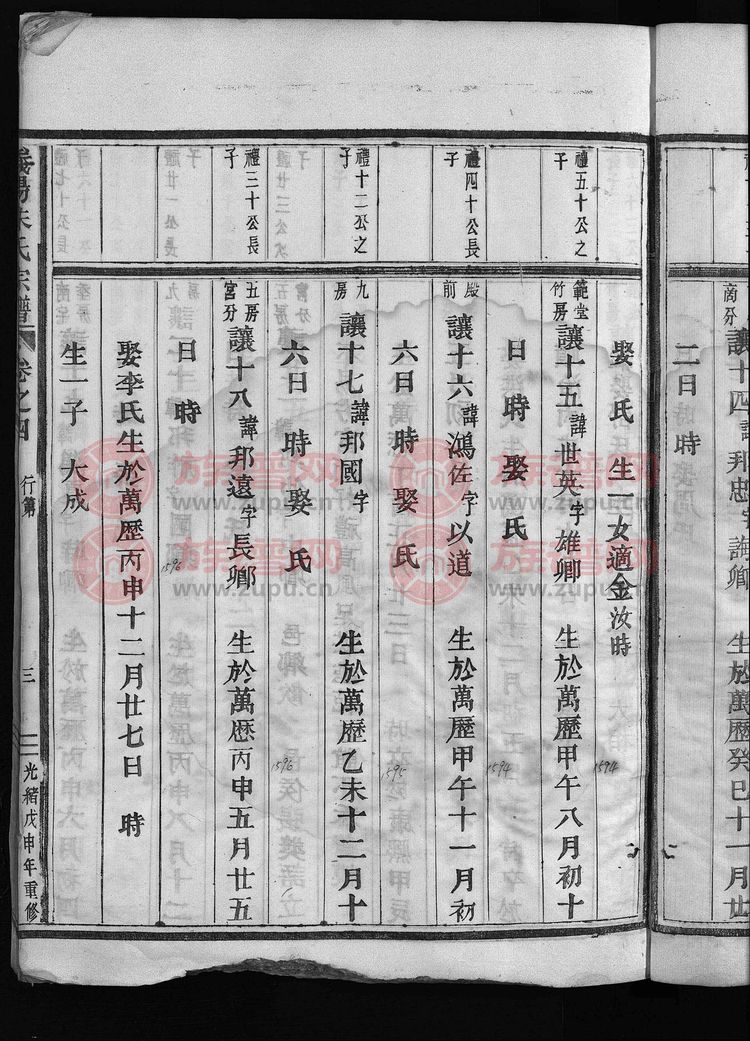 商分 讓十四 諱邦忠 字誨卿 生於萬歷癸巳十一月廿
二日 時
娶 氏 生一女適金汝時
禮五十公長子
範堂竹房 讓十五 諱世英 字雄卿 生於萬歷甲午八月初十
1594
日 時 娶 氏
禮四十公長子
殿前 讓十六 諱鴻佐 字以道 生於萬歷甲午十一月初
1594
六日 時 娶 氏
禮十二公之子
九房 讓十七 諱邦國 字 生於萬歷乙未十二月十
1595
六日 時 娶 氏
禮三十公長子
五房宮分 讓十八 諱邦遠 字長卿 生於萬歷丙申五月廿五
1596
日 時
娶李氏生於萬歷丙申十二月廿七日 時
1596
生一子 大成
義陽朱氏宗譜 卷之四 行第 三 光緒戊申年重修
族谱网
www.zupu.cn
族谱网
www.zupu.cn
族谱网
www.zupu.cn
族谱网
www.zupu.cn